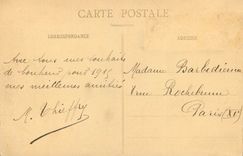 CARTE POSTALE
CORRESPONDANCE
ADRESSE
Avec tous mes souhaits
de bonheur pour 1915
mes meilleures amitiés
M.
Madame Barbedienne
4 rue Rochebrune
Paris (XI)